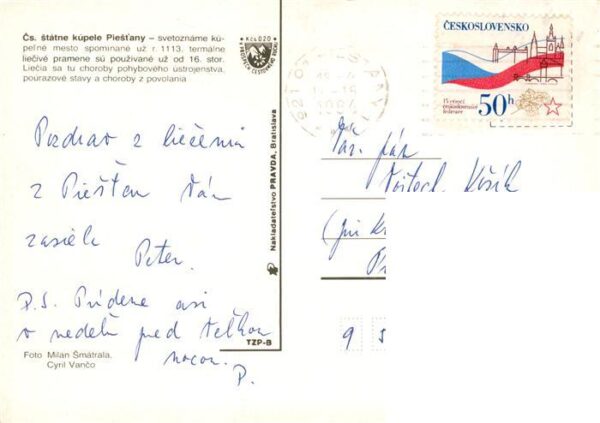 Čs. štátne kúpele Piešťany – svetoznáme kú-
peľné mesto spomínané už r. 1113. termálne
liečivé pramene sú používané už od 16. stor.
Liečia sa tu choroby pohybového ústrojenstva,
poúrazové stavy a choroby z povolania
Kčs 0,20
Pozdrav z liečenia
z Piešťan Vám
zasiela
Peter.
P.S. Prídeme asi
v nedeľu pred Veľkou
nocou.
P.
Foto Milan Šmátrala,
Cyril Vančo
Nakladateľstvo PRAVDA, Bratislava
TZP-B
ČESKOSLOVENSKO
15. výročí
československé
federace
50h
921 01
Važ. pán
Vojtech
9 5